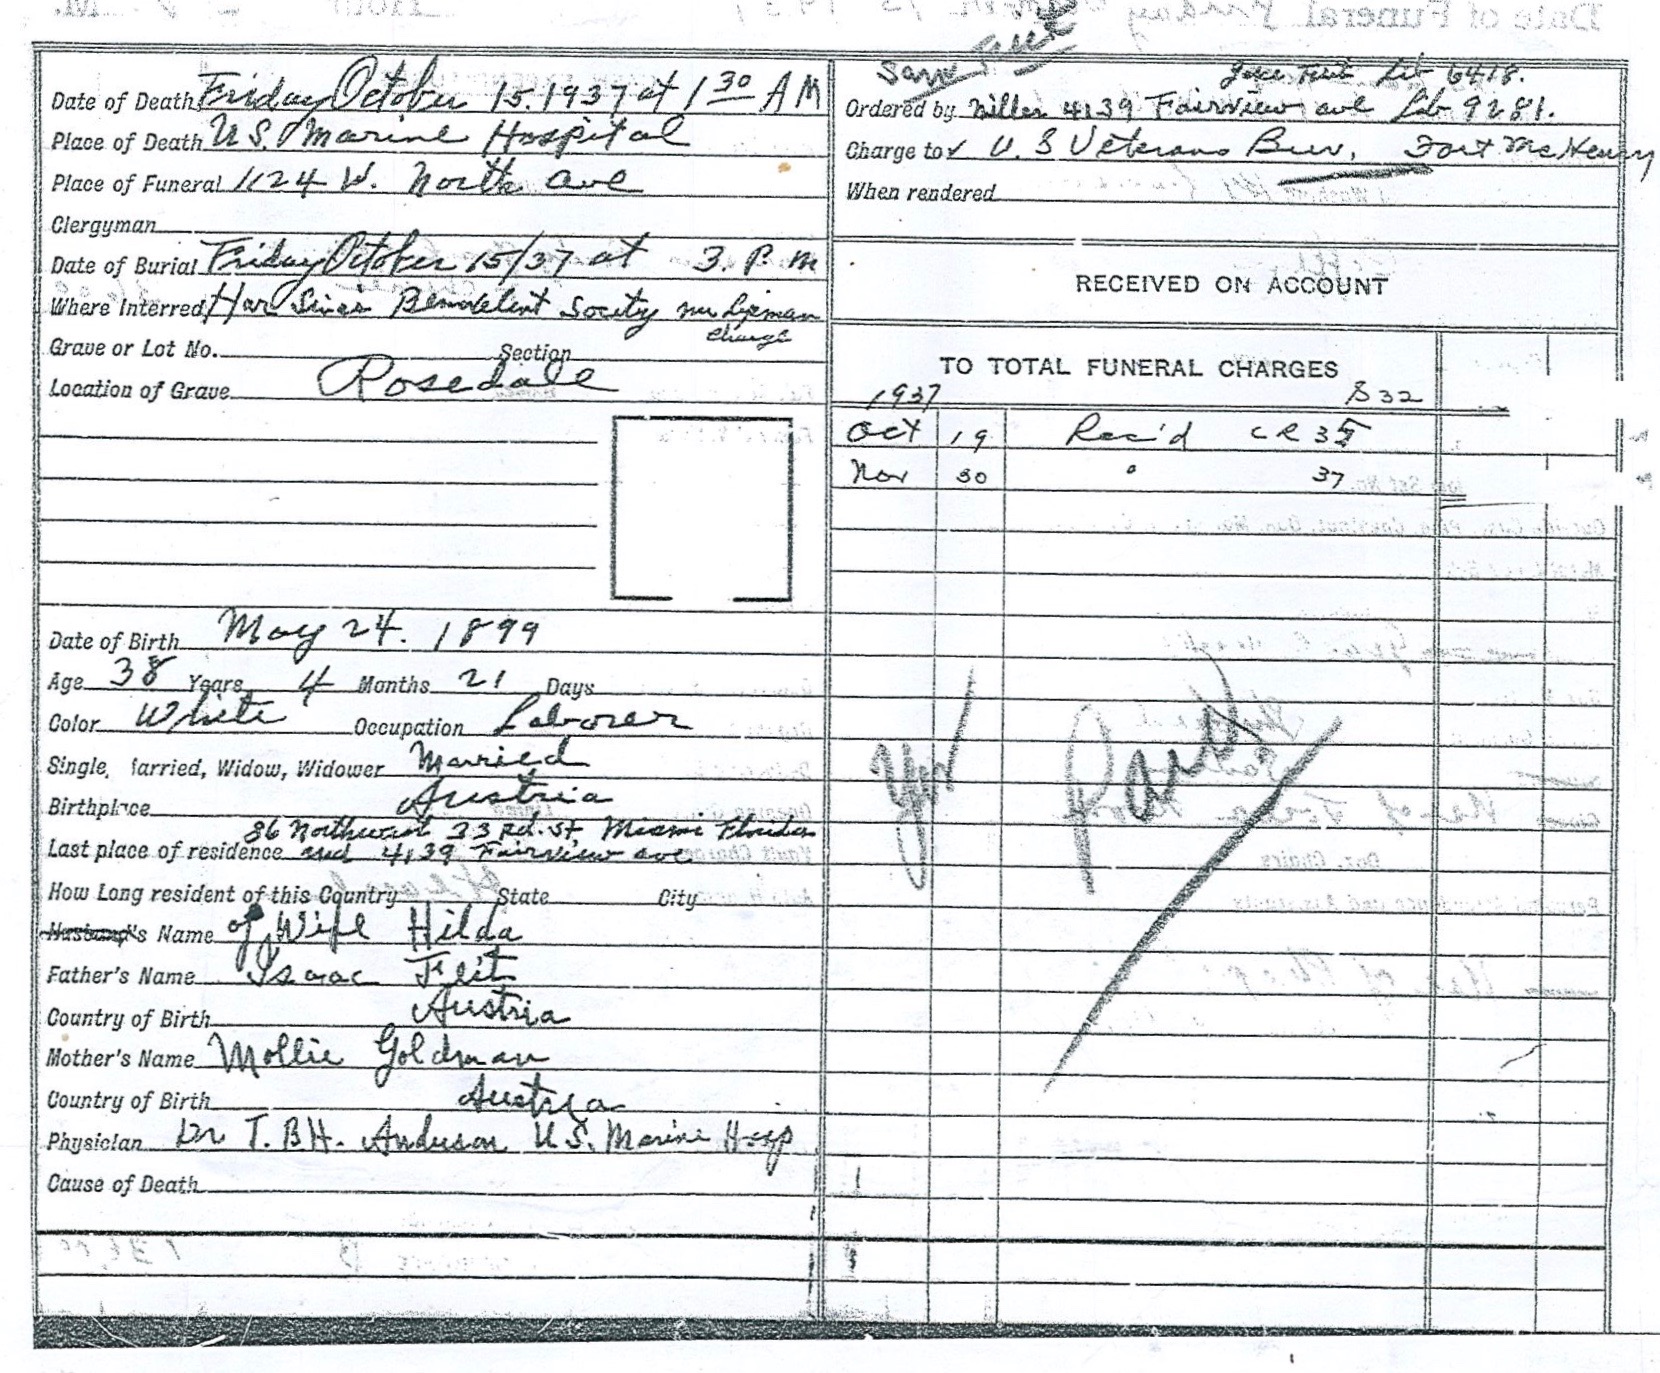 Date of Funeral Friday
Date of Death Friday October 15. 1937 at 1 30 AM
Place of Death U.S. Marine Hospital
Place of Funeral 1124 W. North ave
Clergyman
Date of Burial Friday October 15/37 at 3. P. M
Where Interred Har Sinai Benevelent Society Lipman
charge
Grave or Lot No. Section
Location of Grave Rosedale
Date of Birth May 24. 1899
Age 38 Years 4 Months 21 Days
Color White Occupation Laborer
Single, arried, Widow, Widower Married
Birthplace Austria
86 Northwest 23 Rd. St. Miami Florida
Last place of residence and 4139 Fairview ave
How Long resident of this Country State City
Husband's Name of Wife Hilda
Father's Name Isaac Flit
Country of Birth Austria
Mother's Name Mollie Goldman
Country of Birth Austria
Physician Dr T. B. H. Anderson U.S. Marine Hosp
Cause of Death
Lib 6418.
Ordered by Miller 4139 Fairview ave Lib 9281.
Charge to U. S Veterans Bur, Fort McHenry
When rendered
RECEIVED ON ACCOUNT
TO TOTAL FUNERAL CHARGES
1937 832
Oct 19 Rec'd CR 35
Nov 30 " 37